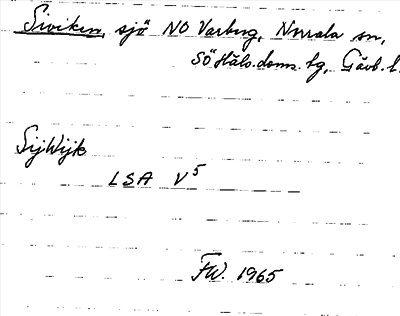 Siviken, sjö NO Varberg, Norrala sn,
Sö Häls. doms. tg, Gävl. l.
SijWijk
LSA V5
FW. 1965